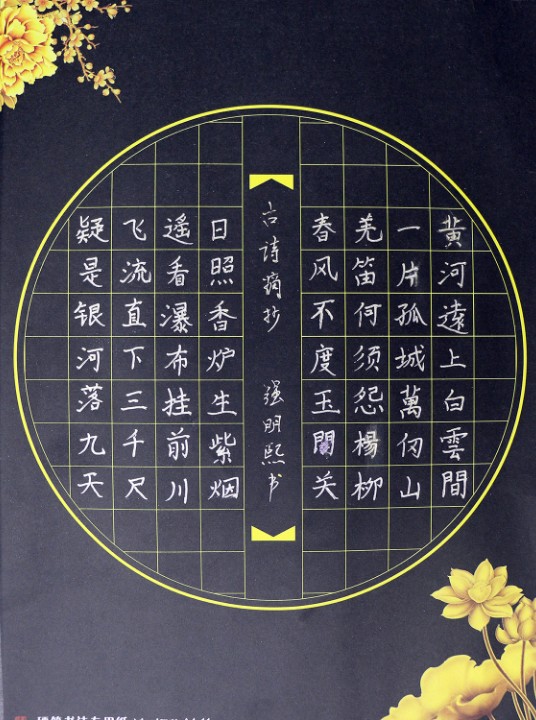 黄河遠上白雲間
一片孤城萬仞山
羌笛何须怨楊柳
春风不度玉門关
古诗摘抄 强明熙书
日照香炉生紫烟
遥看瀑布挂前川
飞流直下三千尺
疑是银河落九天